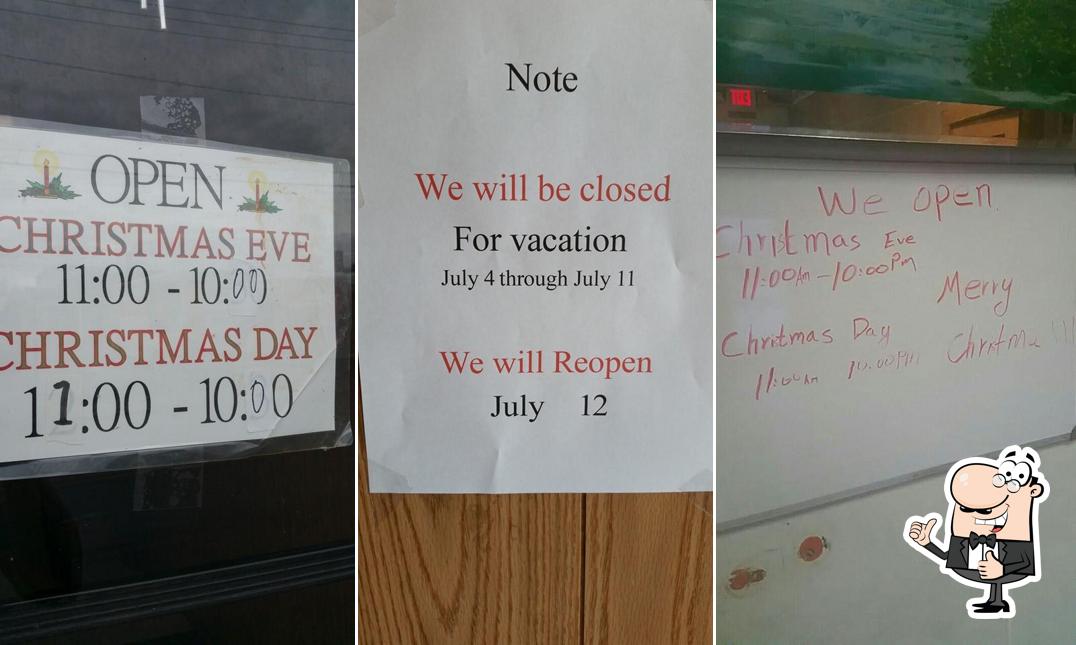 OPEN
CHRISTMAS EVE
11:00 - 10:00
CHRISTMAS DAY
11:00 - 10:00
Note
We will be closed
For vacation
July 4 through July 11
We will Reopen
July 12
We open
Christmas Eve
11:00Am - 10:00Pm
Merry
Christmas Day
11:00Am 10:00PM